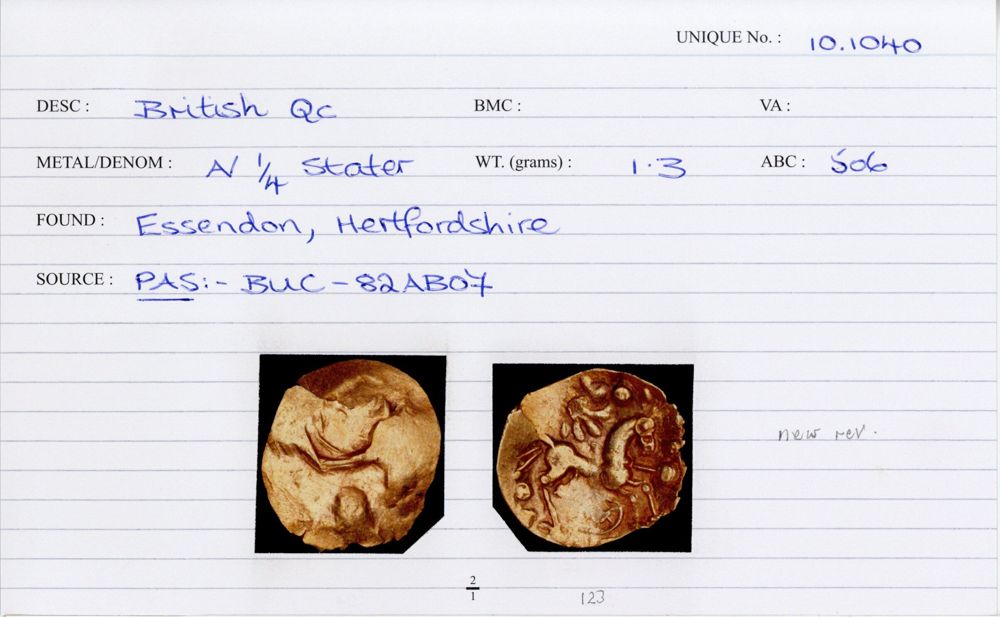 UNIQUE No. : 10.1040
DESC : British Qc BMC : VA :
METAL/DENOM : A/ 1/4 Stater WT. (grams) : 1.3 ABC : 506
FOUND : Essendon, Hertfordshire
SOURCE : PAS:- BUC-82AB07
new rev.
2/1 123